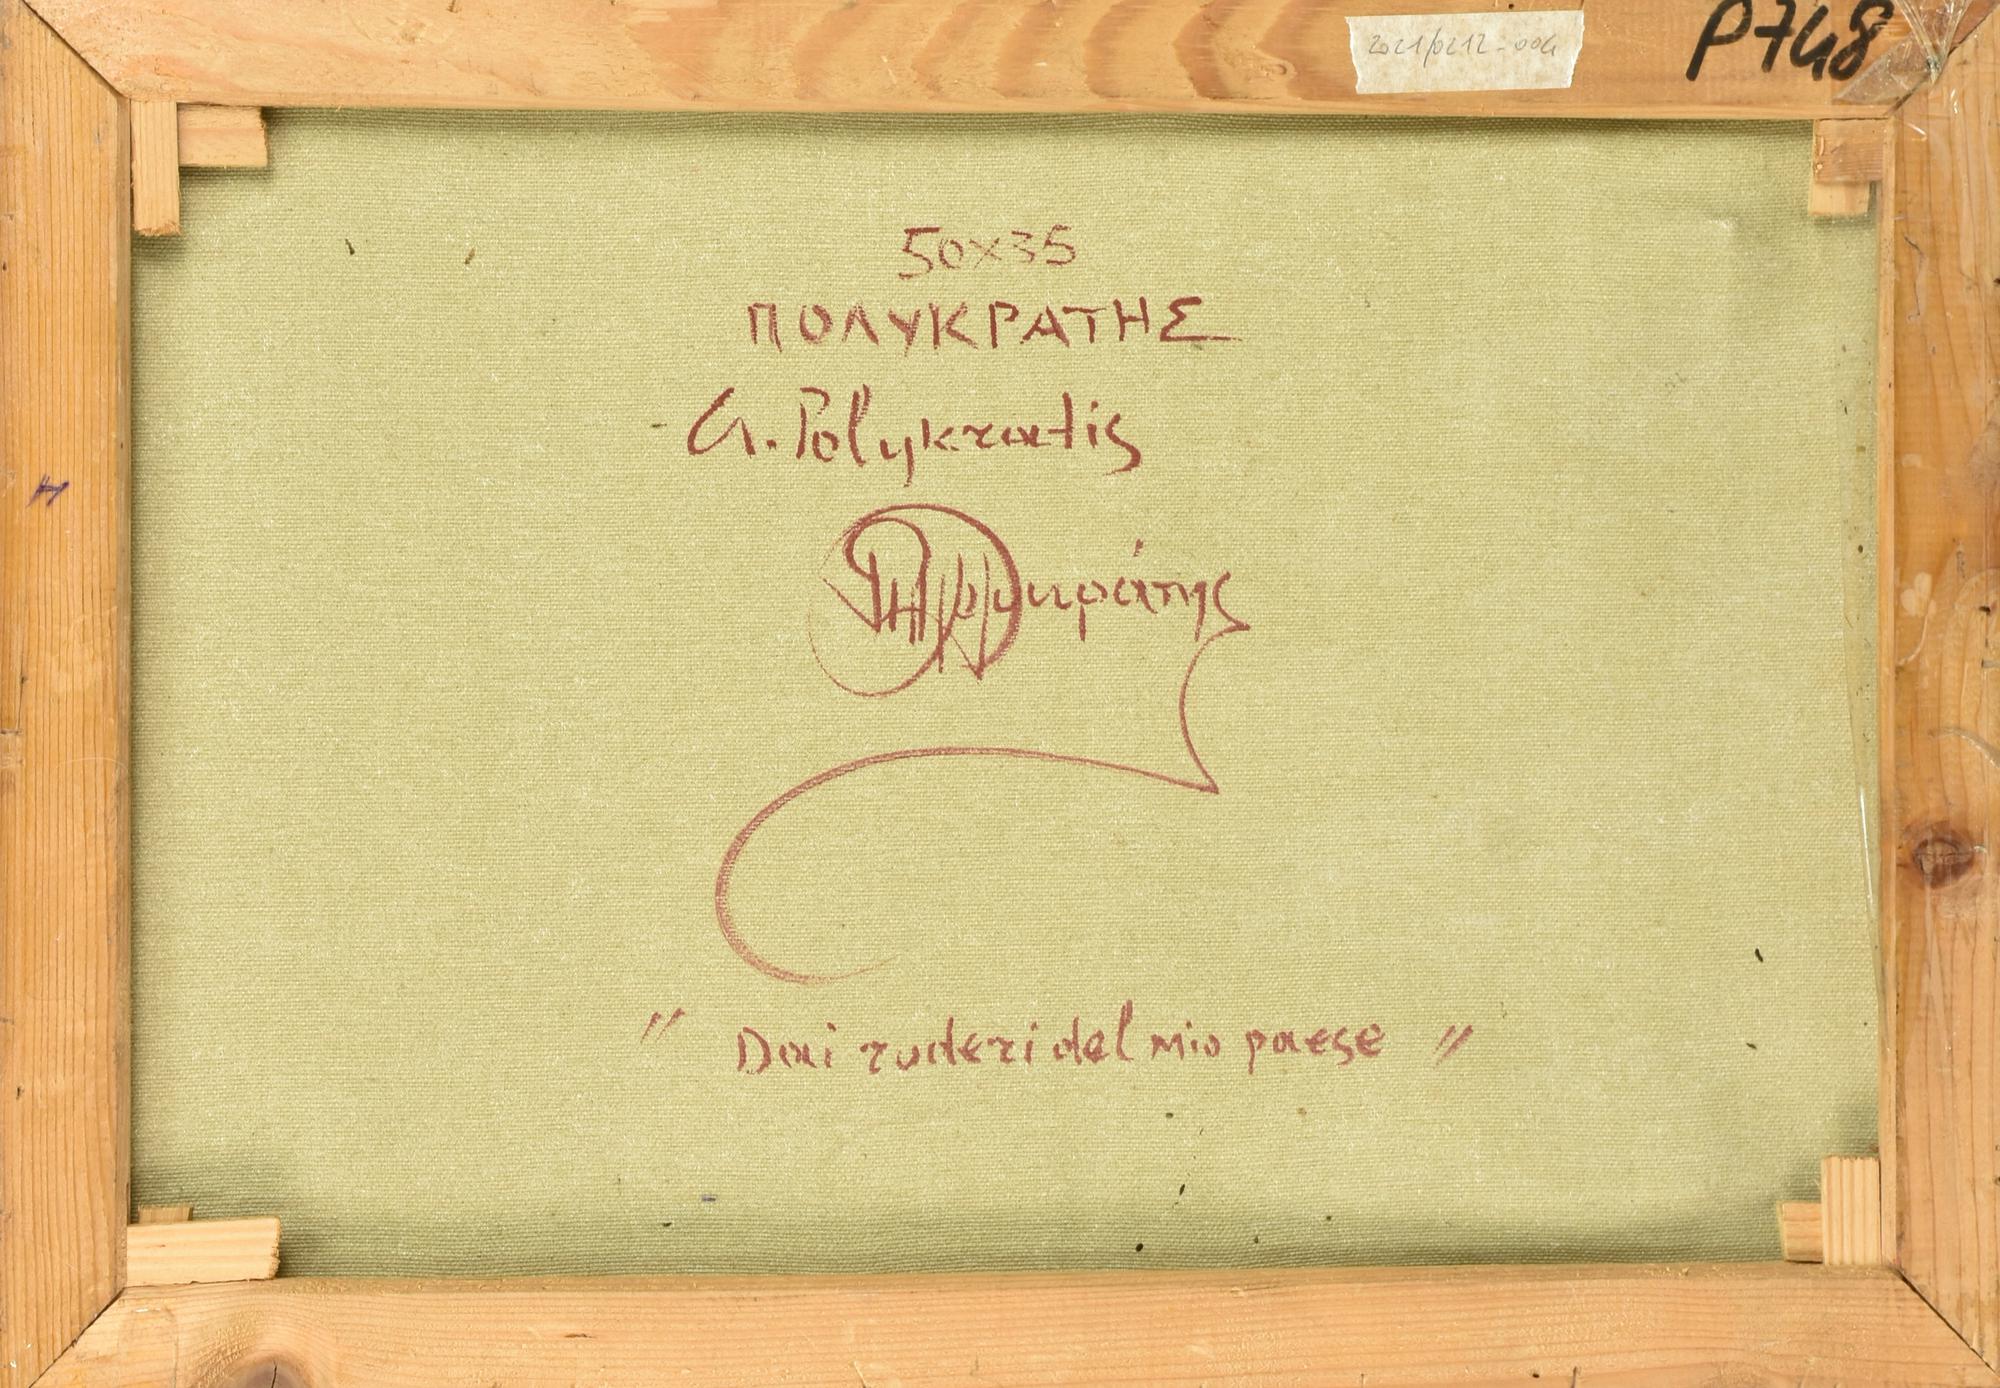 2021/0212-004
P748
50x35
ΠΟΛΥΚΡΑΤΗΣ
G. Polykratis
" Dai ruderi del mio paese "